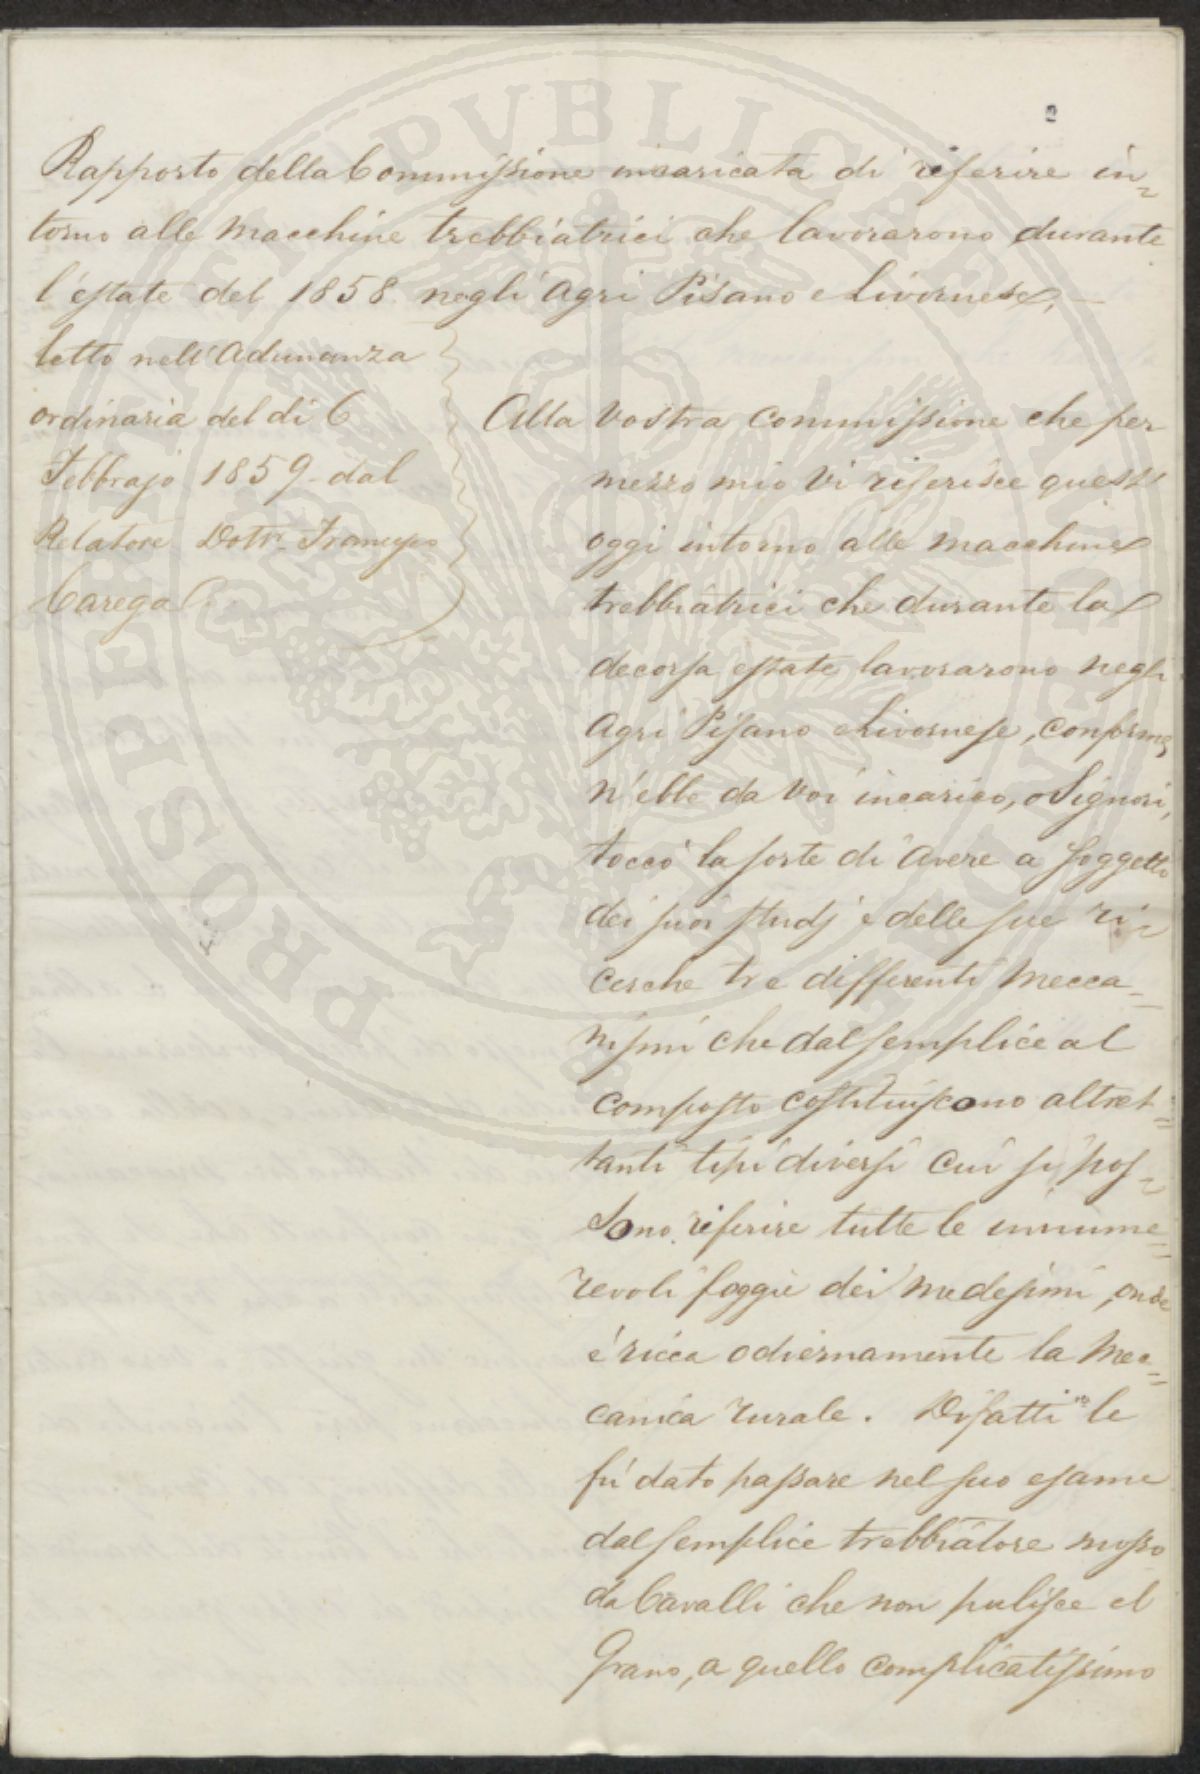 2
Rapporto della Commissione incaricata di riferire in=
torno alle Macchine trebbiatrici che lavorarono durante
l'estate del 1858 negli Agri Pisano e Livornese,
letto nell'Adunanza
ordinaria del di 6
Febbrajo 1859 dal
Relatore Dott. Francesco
Carega
Alla Vostra Commissione che per
mezzo mio Vi riferisce quest'
oggi intorno alle macchine
trebbiatrici che durante la
decorsa estate lavorarono negli
Agri Pisano e Livornese, conforme
n'ebbe da Voi incarico, o Signori,
toccò la sorte di avere a soggetto
dei suoi studj e delle sue ri=
cerche tre differenti Mecca=
nismi che dal semplice al
composto costituiscono altret=
tanti tipi diversi cui si pos=
sono riferire tutte le innume=
revoli foggie dei medesimi, onde
è ricca odiernamente la Mec=
canica rurale. Difatti le
fù dato passare nel suo esame
dal semplice trebbiatore mosso
da Cavalli che non pulisce il
Grano, a quello complicatissimo
PROSPERITATI PVBLICAE AVGENDAE